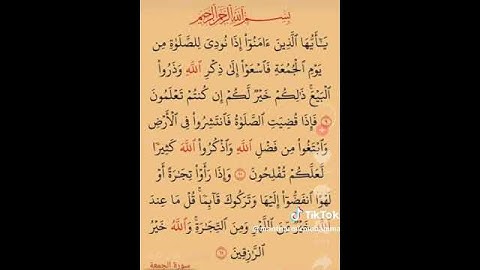 بِسْمِ اللَّهِ الرَّحْمَٰنِ الرَّحِيمِ
يَٰٓأَيُّهَا ٱلَّذِينَ ءَامَنُوٓا۟ إِذَا نُودِىَ لِلصَّلَوٰةِ مِن
يَوْمِ ٱلْجُمُعَةِ فَٱسْعَوْا۟ إِلَىٰ ذِكْرِ ٱللَّهِ وَذَرُوا۟
ٱلْبَيْعَ ۚ ذَٰلِكُمْ خَيْرٌ لَّكُمْ إِن كُنتُمْ تَعْلَمُونَ
٩ فَإِذَا قُضِيَتِ ٱلصَّلَوٰةُ فَٱنتَشِرُوا۟ فِى ٱلْأَرْضِ
وَٱبْتَغُوا۟ مِن فَضْلِ ٱللَّهِ وَٱذْكُرُوا۟ ٱللَّهَ كَثِيرًا
لَّعَلَّكُمْ تُفْلِحُونَ ١٠ وَإِذَا رَأَوْا۟ تِجَٰرَةً أَوْ
لَهْوًا ٱنفَضُّوٓا۟ إِلَيْهَا وَتَرَكُوكَ قَآئِمًا ۚ قُلْ مَا عِندَ
TikTok
ٱللَّهِ خَيْرٌ مِّنَ ٱللَّهْوِ وَمِنَ ٱلتِّجَٰرَةِ ۚ وَٱللَّهُ خَيْرُ
ٱلرَّٰزِقِينَ ١١
سورة الجمعة